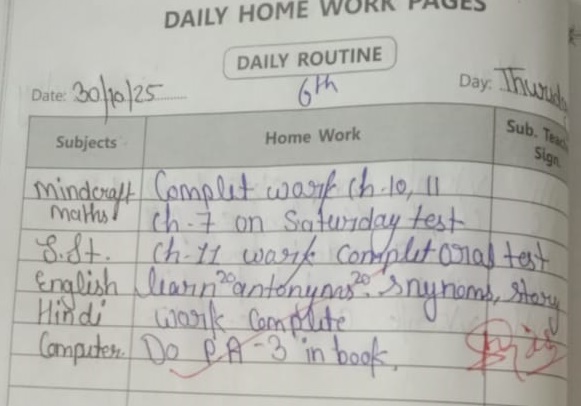 DAILY HOME WORK PAGES
DAILY ROUTINE
Date: 30/10/25 6th Day: Thursda
Subjects Home Work Sub. Teac Sign.
Mindcraft Complet work Ch-10, 11
Maths Ch-7 on Saturday test
S.St. Ch-11 work complet oral test
English learn 20 antonyms 20 Snynoms, story
Hindi work Complite
Computer. Do PA-3 in book.